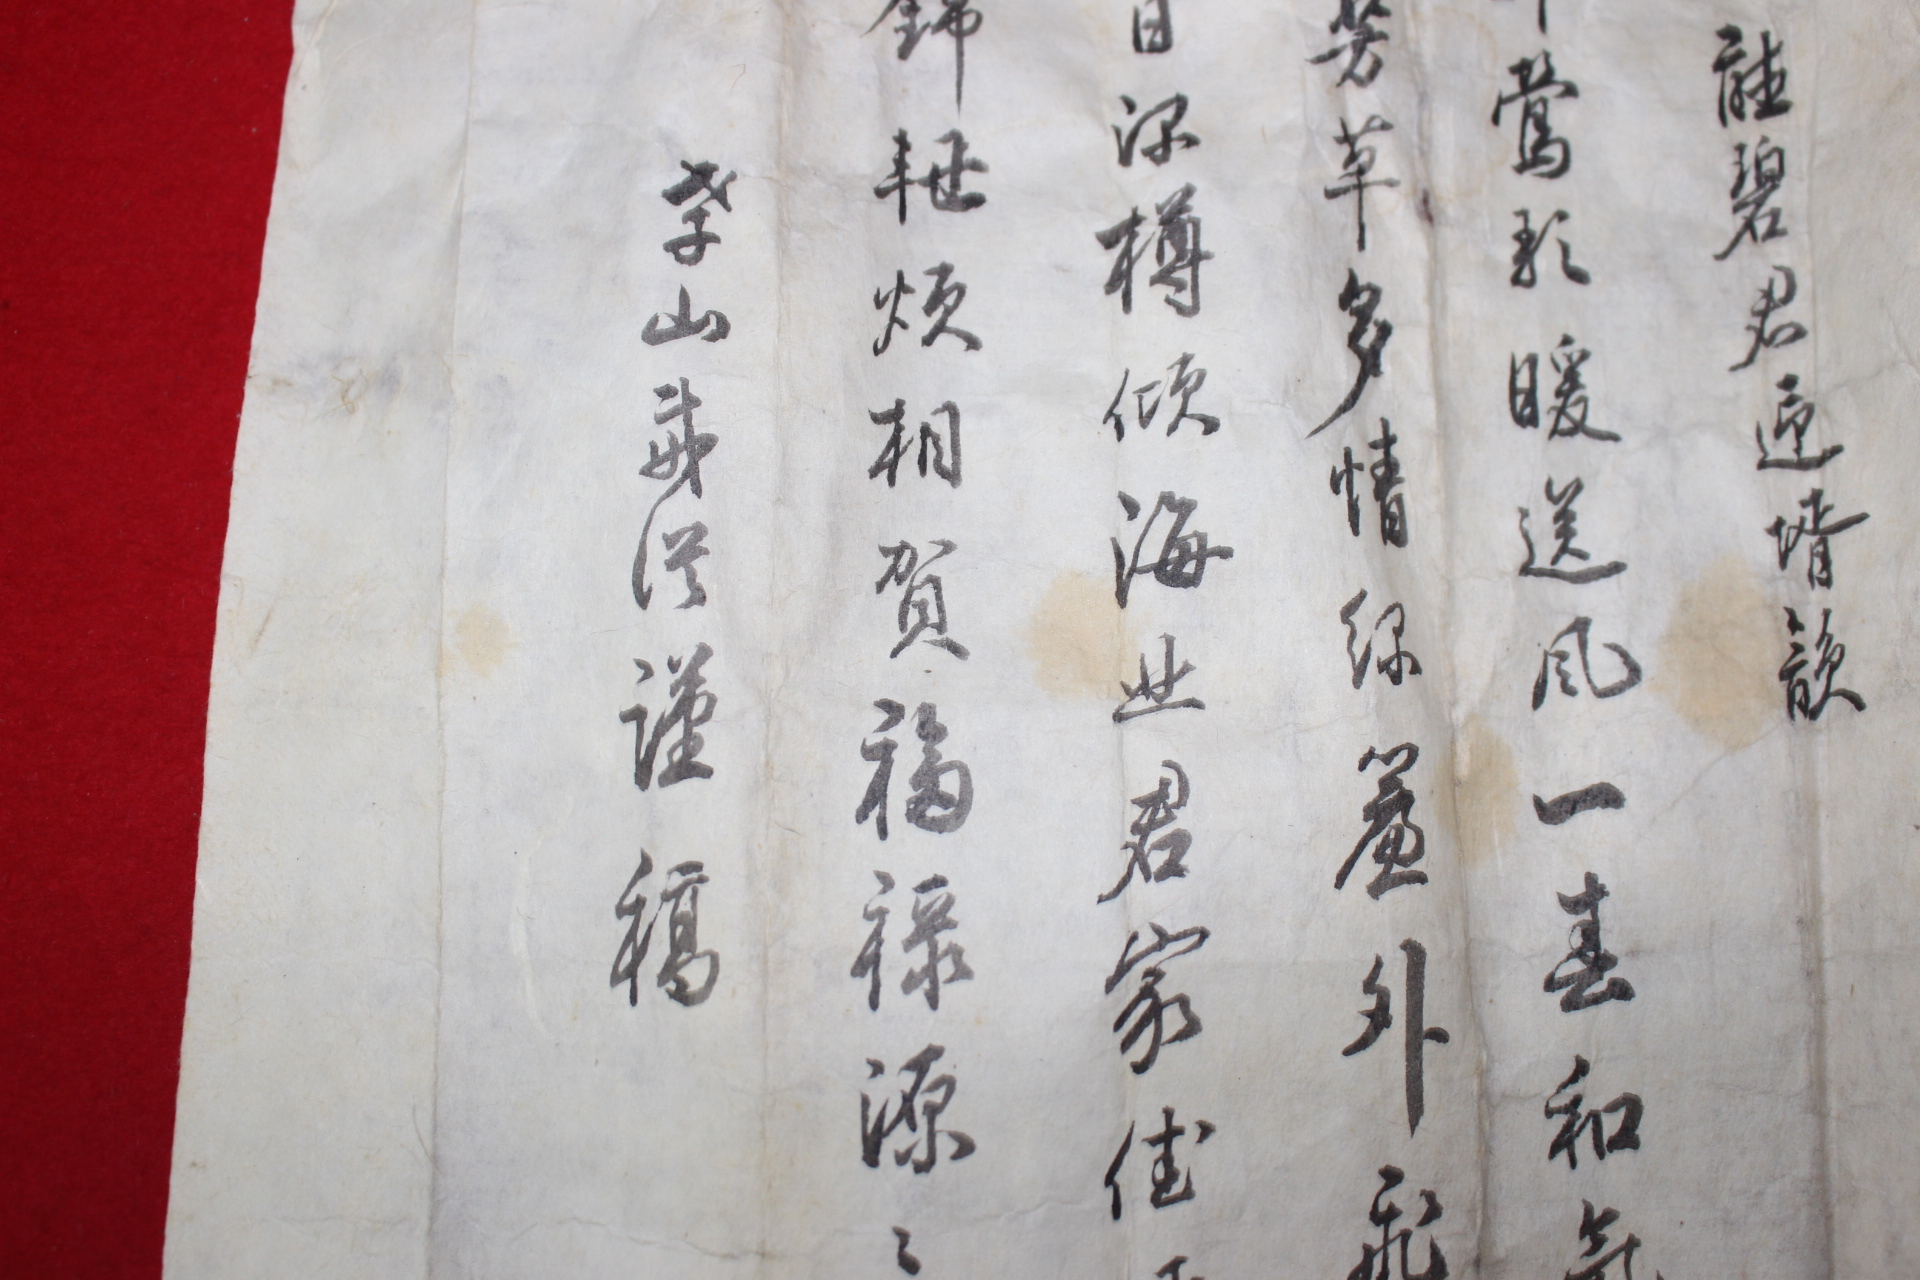 碧君迎婿韻
鶯歌暖送風一春和氣
芳草多情緑簾外飛
日深樽傾海此君家佳
錦
煩相賀福祿源々
山戒従謹稿